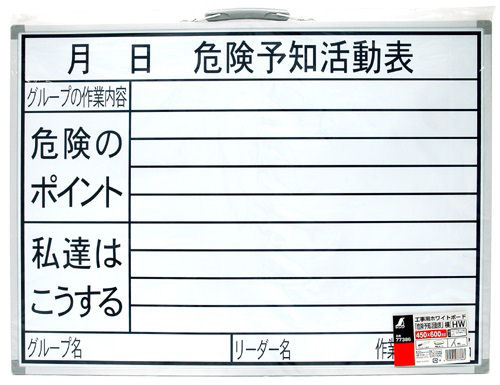 月 日 危険予知活動表
グループの作業内容
危険の
ポイント
私達は
こうする
グループ名
リーダー名
作業
工事用ホワイトボード
「危険予知活動表」横 HW
450×600
77386